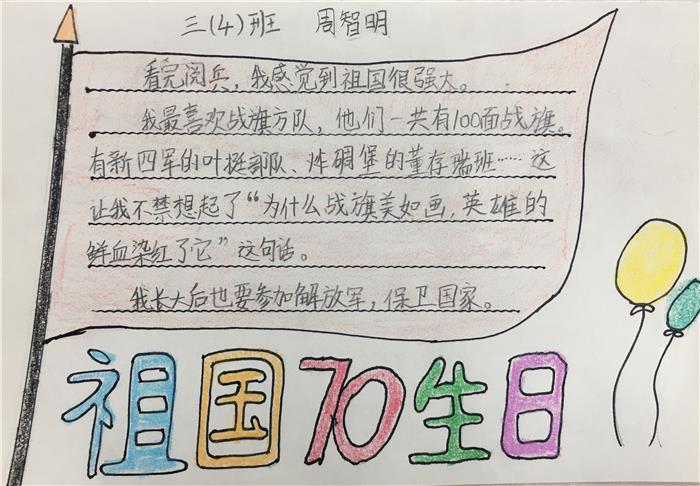 三(4)班 周智明
看完阅兵，我感觉到祖国很强大。
我最喜欢战旗方队，他们一共有100面战旗。
有新四军的叶挺部队、炸碉堡的董存瑞班……这
让我不禁想起了“为什么战旗美如画，英雄的
鲜血染红了它”这句话。
我长大后也要参加解放军，保卫国家。
祖国70生日